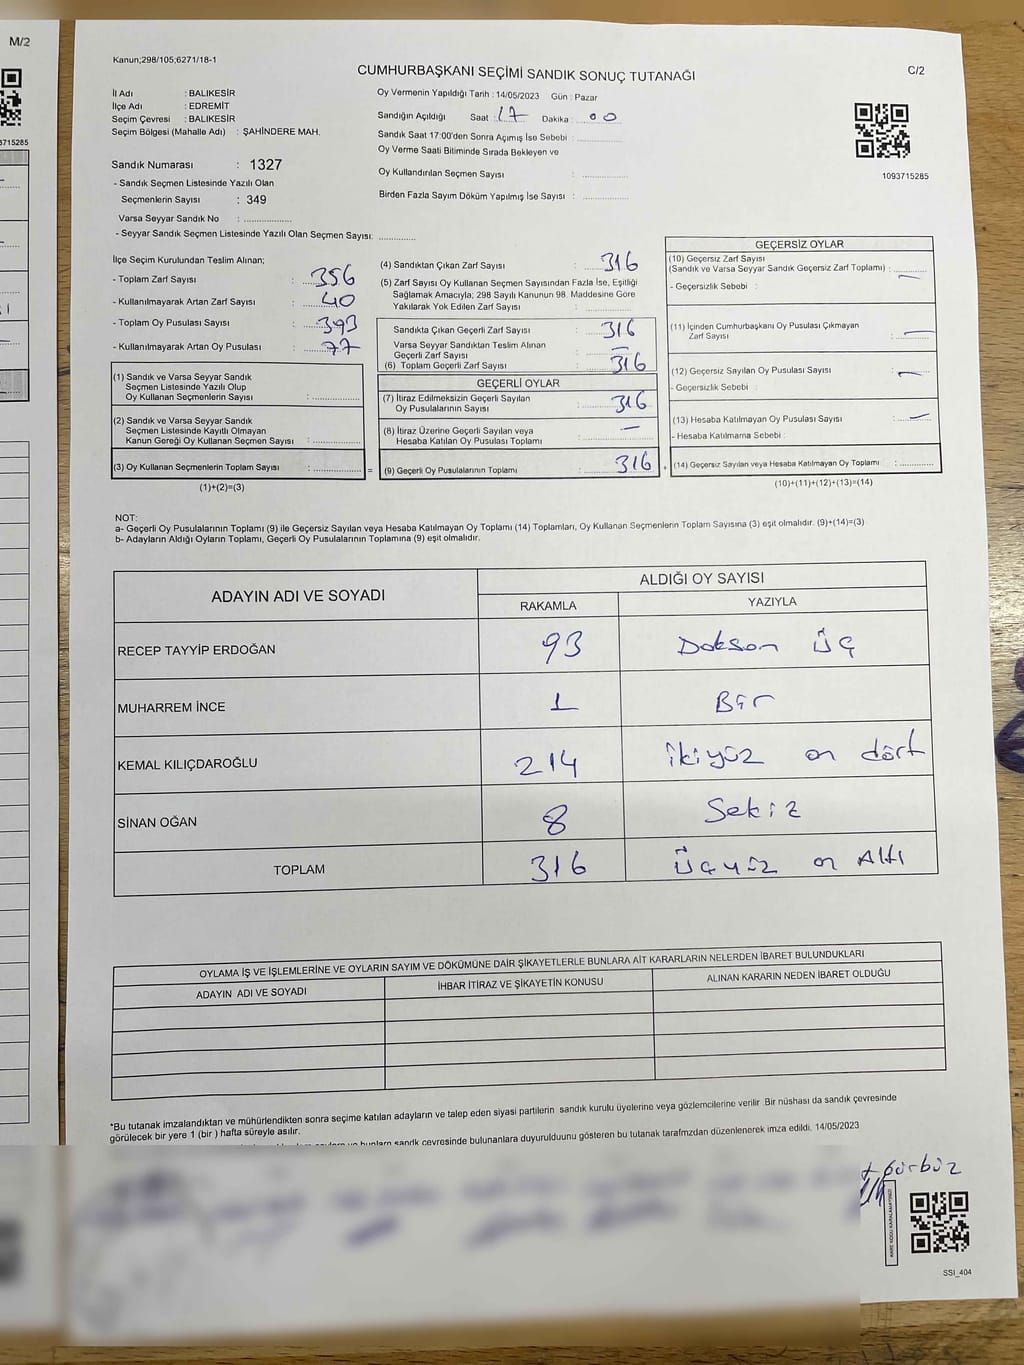 M/2
3715285
Kanun;298/105;6271/18-1
CUMHURBAŞKANI SEÇİMİ SANDIK SONUÇ TUTANAĞI
C/2
İl Adı : BALIKESİR
İlçe Adı : EDREMİT
Seçim Çevresi : BALIKESİR
Seçim Bölgesi (Mahalle Adı) : ŞAHİNDERE MAH.
Oy Vermenin Yapıldığı Tarih : 14/05/2023 Gün : Pazar
Sandığın Açıldığı Saat : 17 Dakika : 00
Sandık Saat 17:00'den Sonra Açımış İse Sebebi :
Oy Verme Saati Bitiminde Sırada Bekleyen ve
Oy Kullandırılan Seçmen Sayısı :
Birden Fazla Sayım Döküm Yapılmış İse Sayısı :
1093715285
Sandık Numarası : 1327
- Sandık Seçmen Listesinde Yazılı Olan
Seçmenlerin Sayısı : 349
Varsa Seyyar Sandık No :
- Seyyar Sandık Seçmen Listesinde Yazılı Olan Seçmen Sayısı:
İlçe Seçim Kurulundan Teslim Alınan;
- Toplam Zarf Sayısı : 356
- Kullanılmayarak Artan Zarf Sayısı : 40
- Toplam Oy Pusulası Sayısı : 393
- Kullanılmayarak Artan Oy Pusulası : 77
(1) Sandık ve Varsa Seyyar Sandık
Seçmen Listesinde Yazılı Olup
Oy Kullanan Seçmenlerin Sayısı :
(2) Sandık ve Varsa Seyyar Sandık
Seçmen Listesinde Kayıtlı Olmayan
Kanun Gereği Oy Kullanan Seçmen Sayısı :
(3) Oy Kullanan Seçmenlerin Toplam Sayısı : =
(1)+(2)=(3)
(4) Sandıktan Çıkan Zarf Sayısı : 316
(5) Zarf Sayısı Oy Kullanan Seçmen Sayısından Fazla İse, Eşitliği
Sağlamak Amacıyla; 298 Sayılı Kanunun 98. Maddesine Göre
Yakılarak Yok Edilen Zarf Sayısı :
Sandıkta Çıkan Geçerli Zarf Sayısı : 316
Varsa Seyyar Sandıktan Teslim Alınan
Geçerli Zarf Sayısı : —
(6) Toplam Geçerli Zarf Sayısı : 316
GEÇERLİ OYLAR
(7) İtiraz Edilmeksizin Geçerli Sayılan
Oy Pusulalarının Sayısı : 316
(8) İtiraz Üzerine Geçerli Sayılan veya
Hesaba Katılan Oy Pusulası Toplamı : —
(9) Geçerli Oy Pusulalarının Toplamı : 316
GEÇERSİZ OYLAR
(10) Geçersiz Zarf Sayısı
(Sandık ve Varsa Seyyar Sandık Geçersiz Zarf Toplamı) :
- Geçersizlik Sebebi :
(11) İçinden Cumhurbaşkanı Oy Pusulası Çıkmayan
Zarf Sayısı : —
(12) Geçersiz Sayılan Oy Pusulası Sayısı : —
- Geçersizlik Sebebi :
(13) Hesaba Katılmayan Oy Pusulası Sayısı : —
- Hesaba Katılmama Sebebi :
(14) Geçersiz Sayılan veya Hesaba Katılmayan Oy Toplamı :
(10)+(11)+(12)+(13)=(14)
NOT:
a- Geçerli Oy Pusulalarının Toplamı (9) ile Geçersiz Sayılan veya Hesaba Katılmayan Oy Toplamı (14) Toplamları, Oy Kullanan Seçmenlerin Toplam Sayısına (3) eşit olmalıdır. (9)+(14)=(3)
b- Adayların Aldığı Oyların Toplamı, Geçerli Oy Pusulalarının Toplamına (9) eşit olmalıdır.
ADAYIN ADI VE SOYADI ALDIĞI OY SAYISI
RAKAMLA YAZIYLA
RECEP TAYYİP ERDOĞAN 93 Doksan Üç
MUHARREM İNCE 1 Bir
KEMAL KILIÇDAROĞLU 214 ikiyüz on dört
SİNAN OĞAN 8 Sekiz
TOPLAM 316 Üçyüz on Altı
OYLAMA İŞ VE İŞLEMLERİNE VE OYLARIN SAYIM VE DÖKÜMÜNE DAİR ŞİKAYETLERLE BUNLARA AİT KARARLARIN NELERDEN İBARET BULUNDUKLARI
ADAYIN ADI VE SOYADI İHBAR İTİRAZ VE ŞİKAYETİN KONUSU ALINAN KARARIN NEDEN İBARET OLDUĞU
*Bu tutanak imzalandıktan ve mühürlendikten sonra seçime katılan adayların ve talep eden siyasi partilerin sandık kurulu üyelerine veya gözlemcilerine verilir .Bir nüshası da sandık çevresinde
görülecek bir yere 1 (bir ) hafta süreyle asılır.
bunların sandk çevresinde bulunanlara duyurulduunu gösteren bu tutanak tarafmzdan düzenlenerek imza edildi. 14/05/2023
Gürbüz
SSI_404